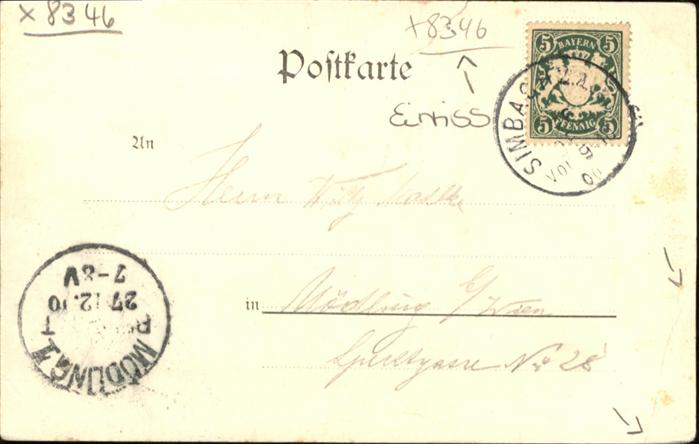 x 8346
x8346
Postkarte
Einriss
5 BAYERN 5
5 PFENNIG 5
SIMBA
An
Herrn Willy
in Mödling b/Wien
No 28
MÖDLING
27 12 00
7-8V